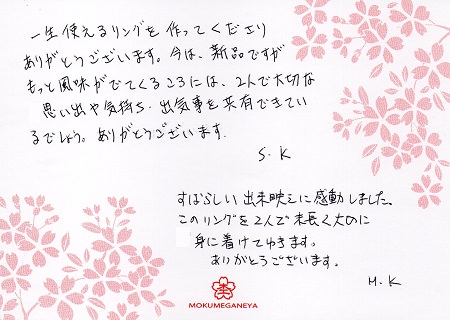 一生使えるリングを作ってくださり
ありがとうございます。今は、新品ですが
もっと風味がでてくるころには、2人で大切な
思い出や気持ち・出来事を共有できてい
るでしょう。ありがとうございます.
S. K
すばらしい出来映えに感動しました。
このリングを2人で末長く大切に
身に着けてゆきます。
ありがとうございます。
M. K
MOKUMEGANEYA